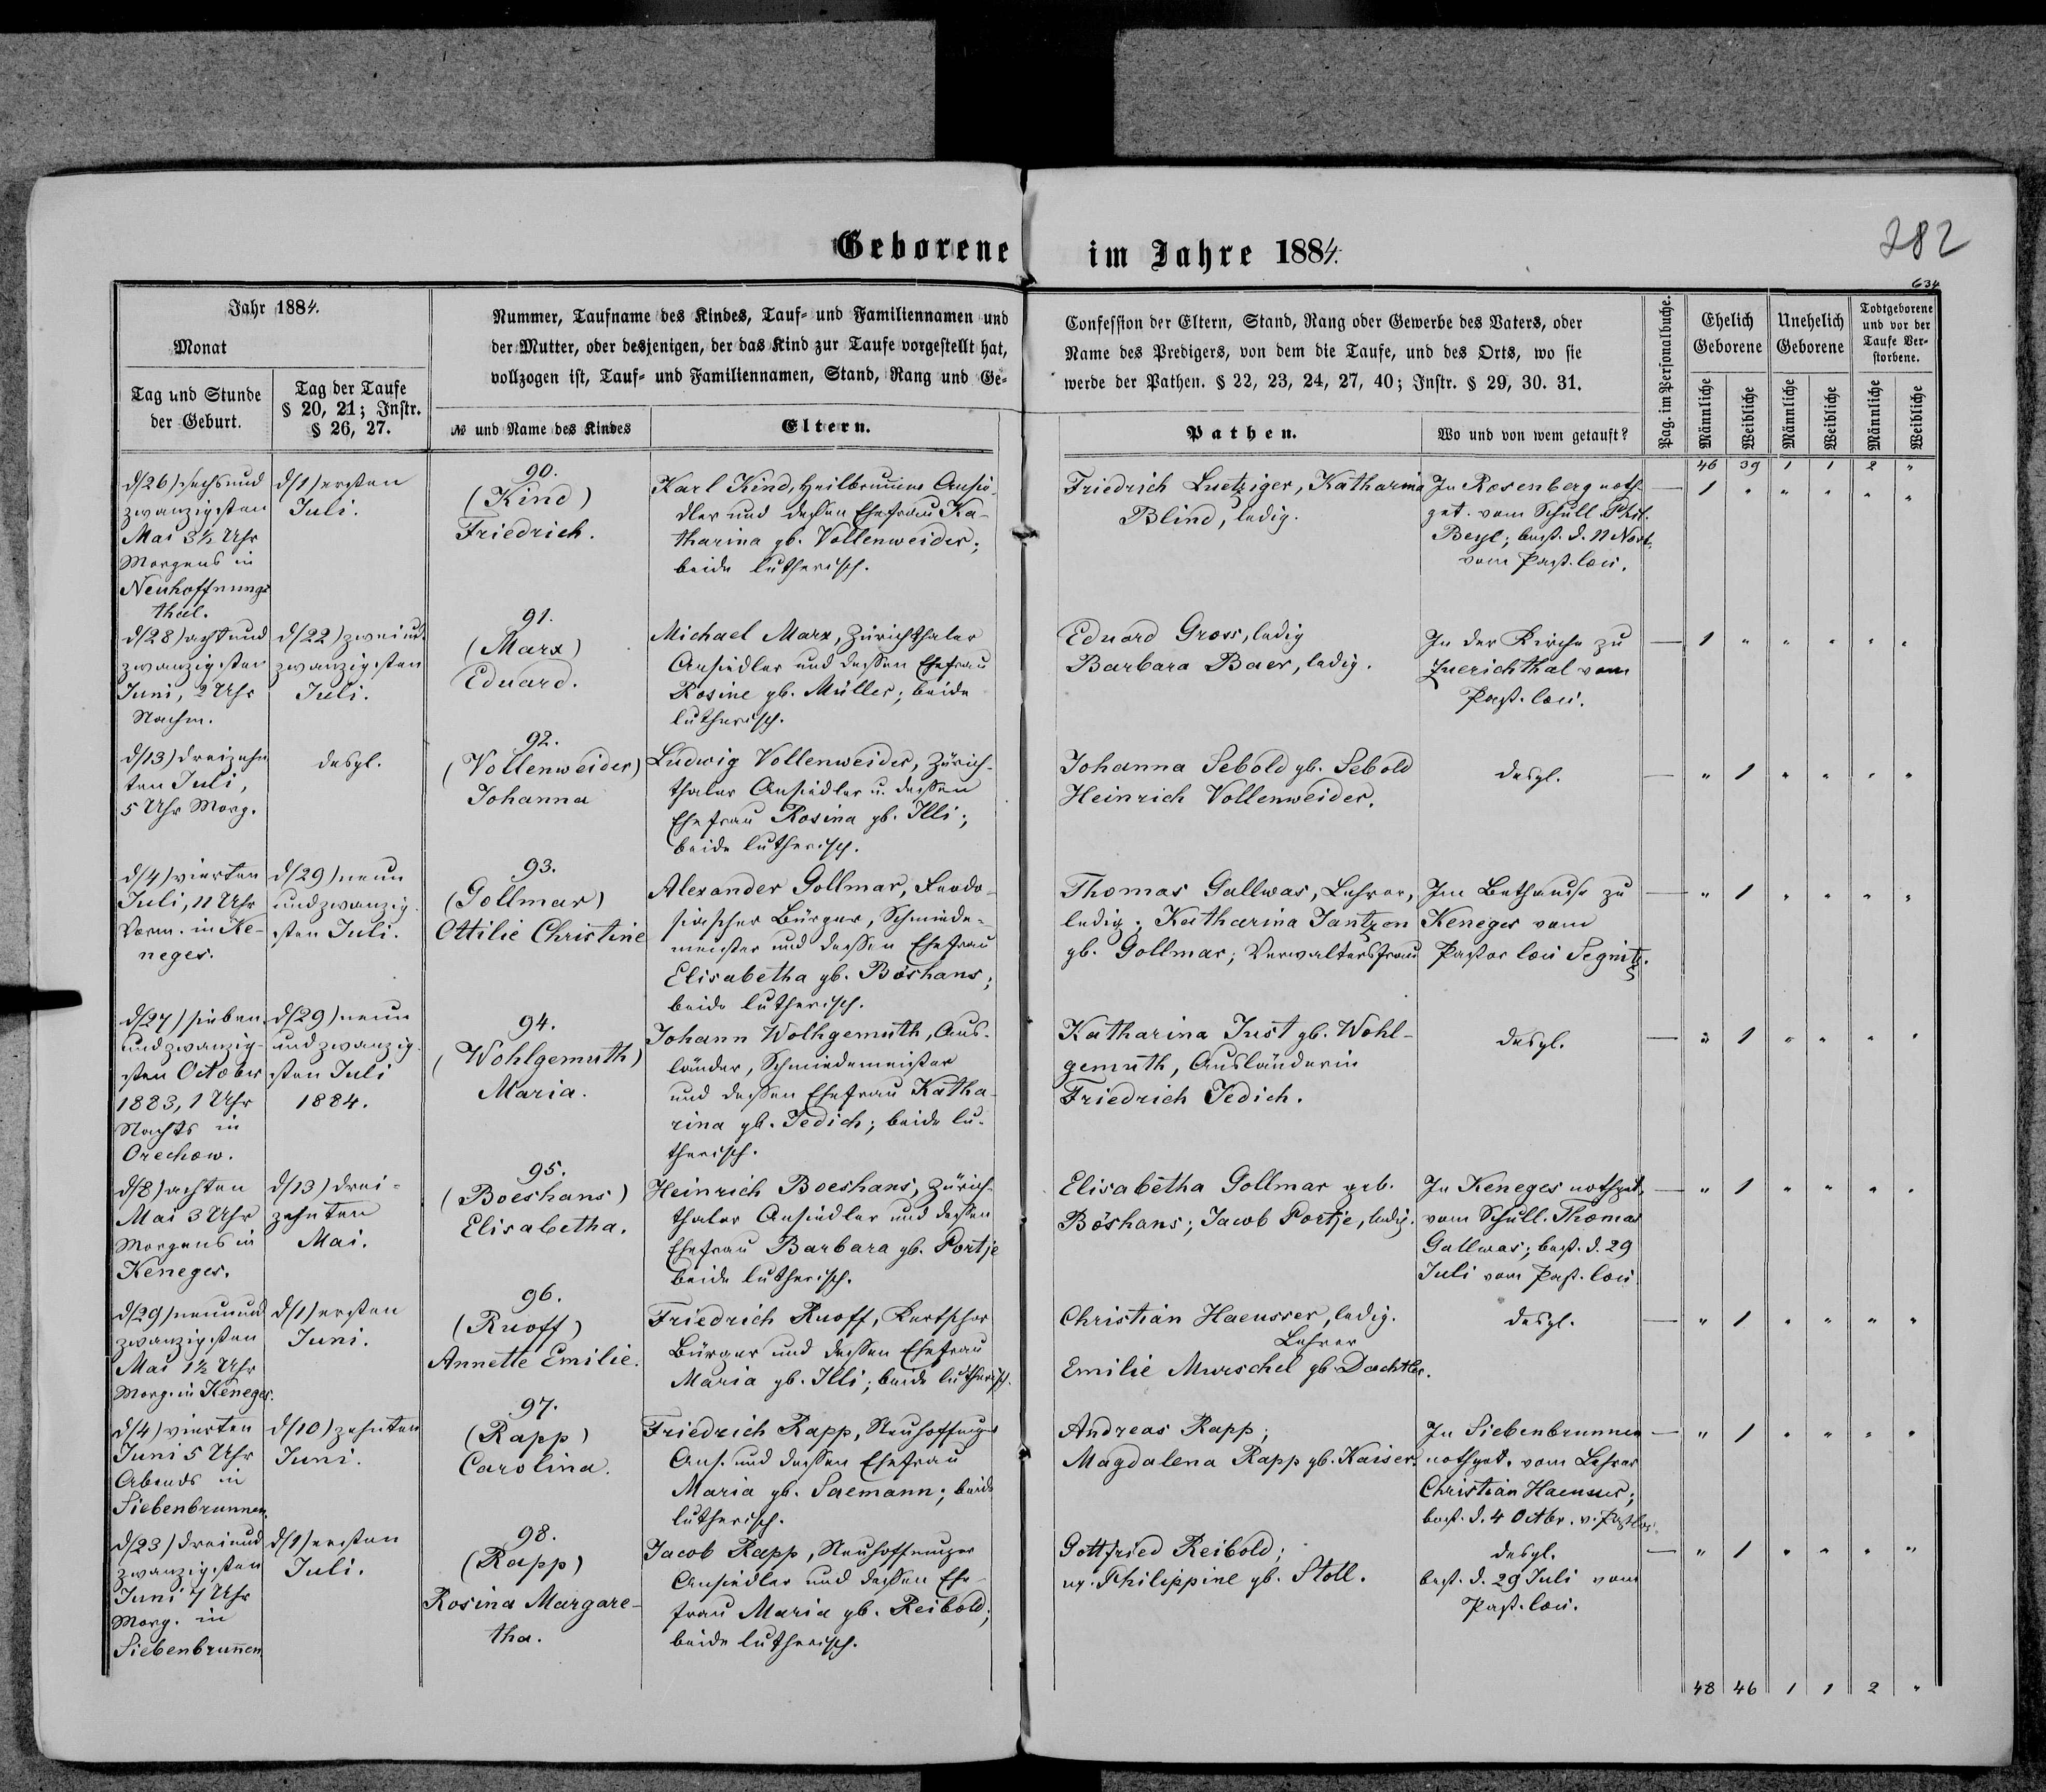 282
634
Geborene im Jahre 1884.
Jahr 1884.
Monat
Tag und Stunde
der Geburt.
Tag der Taufe
§ 20, 21; Instr.
§ 26, 27.
Nummer, Taufname des Kindes, Tauf- und Familiennamen und
der Mutter, oder desjenigen, der das Kind zur Taufe vorgestellt hat,
vollzogen ist, Tauf- und Familiennamen, Stand, Rang und Ge-
№ und Name des Kindes
Eltern.
Confession der Eltern, Stand, Rang oder Gewerbe des Vaters, oder
Name des Predigers, von dem die Taufe, und des Orts, wo sie
werde der Pathen. § 22, 23, 24, 27, 40; Instr. § 29, 30. 31.
Pathen.
Wo und von wem getauft?
Pag. im Personalbuche.
Ehelich
Geborene
Unehelich
Geborene
Todtgeborene
und vor der
Taufe Ver-
storbene.
Männliche
Weibliche
Männliche
Weibliche
Männliche
Weibliche
46 39 1 1 2 "
d/26) sechsund
zwanzigsten
Mai 3½ Uhr
Morgens in
Neuhoffnungs
thal.
d/1) ersten
Juli.
90.
(Kind)
Friedrich.
Karl Kind, Heilbrunner Ansie-
dler und dessen Ehefrau Ka-
tharina gb. Vollenweider;
beide lutherisch.
Friedrich Luetziger, Katharina
Blind, ledig.
In Rosenberg noth-
get. vom Schull. Phil.
Beyl; best. d. 11 Novb.
vom Past. loci.
— 1 " " " " "
d/28) acht und
zwanzigsten
Juni, 2 Uhr
Nachm.
d/22) zweiund-
zwanzigsten
Juli.
91.
(Marx)
Eduard.
Michael Marx, Zürichthaler
Ansiedler und dessen Ehefrau
Rosine gb. Müller; beide
lutherisch.
Eduard Gross, ledig
Barbara Baer, ledig.
In der Kirche zu
Zuerichthal vom
Past. loci.
— 1 " " " " "
d/13) dreizehn
ten Juli,
5 Uhr Morg.
desgl.
92.
(Vollenweider)
Johanna
Ludwig Vollenweider, Zürich-
thaler Ansiedler u. dessen
Ehefrau Rosina gb. Illi;
beide lutherisch.
Johanna Sebold gb. Sebold
Heinrich Vollenweider.
desgl.
— " 1 " " " "
d/4) vierten
Juli, 11 Uhr
Vorm. in Ke-
neges.
d/29) neun
undzwanzig-
sten Juli.
93.
(Gollmar)
Ottilie Christine
Alexander Gollmar, Feodo-
siascher Bürger, Schmiede-
meister und dessen Ehefrau
Elisabetha gb. Böshans;
beide lutherisch.
Thomas Gallwas, Lehrer,
ledig; Katharina Jantzen
gb. Gollmar; Verwaltersfrau
Im Bethause zu
Keneges vom
Pastor loci Segnitz.
— " 1 " " " "
d/27) sieben-
undzwanzig-
sten October
1883, 1 Uhr
Nachts in
Orechow.
d/29) neun
undzwanzig-
sten Juli
1884.
94.
(Wohlgemuth)
Maria.
Johann Wolhgemuth, Aus-
länder, Schmiedemeister
und dessen Ehefrau Katha-
rina gb. Jedich; beide lu-
therisch.
Katharina Just gb. Wohl-
gemuth, Ausländerin
Friedrich Jedich.
desgl.
— " 1 " " " "
d/8) achten
Mai 3 Uhr
Morgens in
Keneges.
d/13) drei-
zehnten
Mai.
95.
(Boeshans)
Elisabetha.
Heinrich Boeshans, Zürich-
thaler Ansiedler und dessen
Ehefrau Barbara gb. Portje
beide lutherisch.
Elisabetha Gollmar geb.
Böshans; Jacob Portje, ledig.
In Keneges nothget.
vom Schull. Thomas
Gallwas; best. d. 29
Juli vom Past. loci
— " 1 " " " "
d/29) neunund
zwanzigsten
Mai 1½ Uhr
Morg. in Keneges.
d/1) ersten
Juni.
96.
(Ruoff)
Annette Emilie.
Friedrich Ruoff, Kertscher
Bürger und dessen Ehefrau
Maria gb. Illi; beide lutherisch.
Christian Haeusser, ledig.
Lehrer
Emilie Murschel gb. Dachtler.
desgl.
— " 1 " " " "
d/4) vierten
Juni 5 Uhr
Abends in
Siebenbrunnen.
d/10) zehnten
Juni.
97.
(Rapp)
Carolina.
Friedrich Rapp, Neuhoffnungs
Ans. und dessen Ehefrau
Maria gb. Saemann; beide
lutherisch.
Andreas Rapp;
Magdalena Rapp gb. Kaiser.
In Siebenbrunnen
nothget. vom Lehrer
Christian Haeusser;
best. d. 4 Octbr. v. Past. loci.
— " 1 " " " "
d/23) dreiund
zwanzigsten
Juni 7 Uhr
Morg. in
Siebenbrunnen
d/1) ersten
Juli.
98.
(Rapp)
Rosina Margare-
tha.
Jacob Rapp, Neuhoffnunger
Ansiedler und dessen Ehe-
frau Maria gb. Reibold;
beide lutherisch.
Gottfried Reibold;
Philippine gb. Stoll.
desgl.
best. d. 29 Juli vom
Past. loci.
— " 1 " " " "
48 46 1 1 2 "